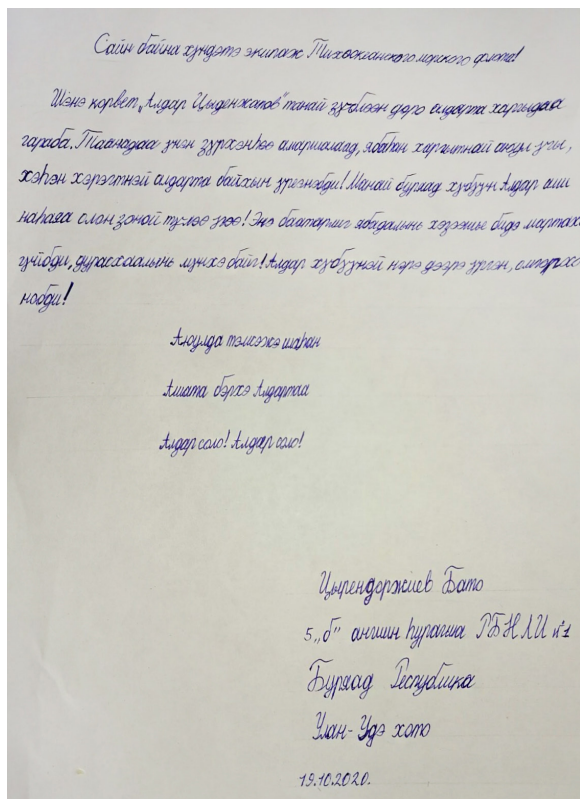 Сайн байна хүндэтэ экипаж Тихоокеанского морского флота!
Шэнэ корвет „Алдар Цыденжапов" танай зүгһөөн дэрэ алдарта харгыдаа
гараба. Таанадаа үнэн зүрхэнһөө амаршалаад, ябаһан харгытнай аюул үгы,
хэһэн хэрэгтнэй алдарта байхын үреэнэбди! Манай буряад хүбүүн Алдар ами
наһаяа олон зоной түлөө үгөө! Энэ баатарлиг ябадалыень хэзээшье бидэ мартаха
гүйбди, дурасхаалынь мүнхэ байг! Алдар хүбүүнэй нэрэ дээрэ үргэн, омогорхо
нобди!
Аюулда тэмсэжэ шадаһан
Ашата бэрхэ Алдартаа
Алдар соло! Алдар соло!
Цырендоржиев Бато
5 „б" ангиин һурагша РБНЛИ №1
Буряад Республика
Улан-Удэ хото
19.10.2020.